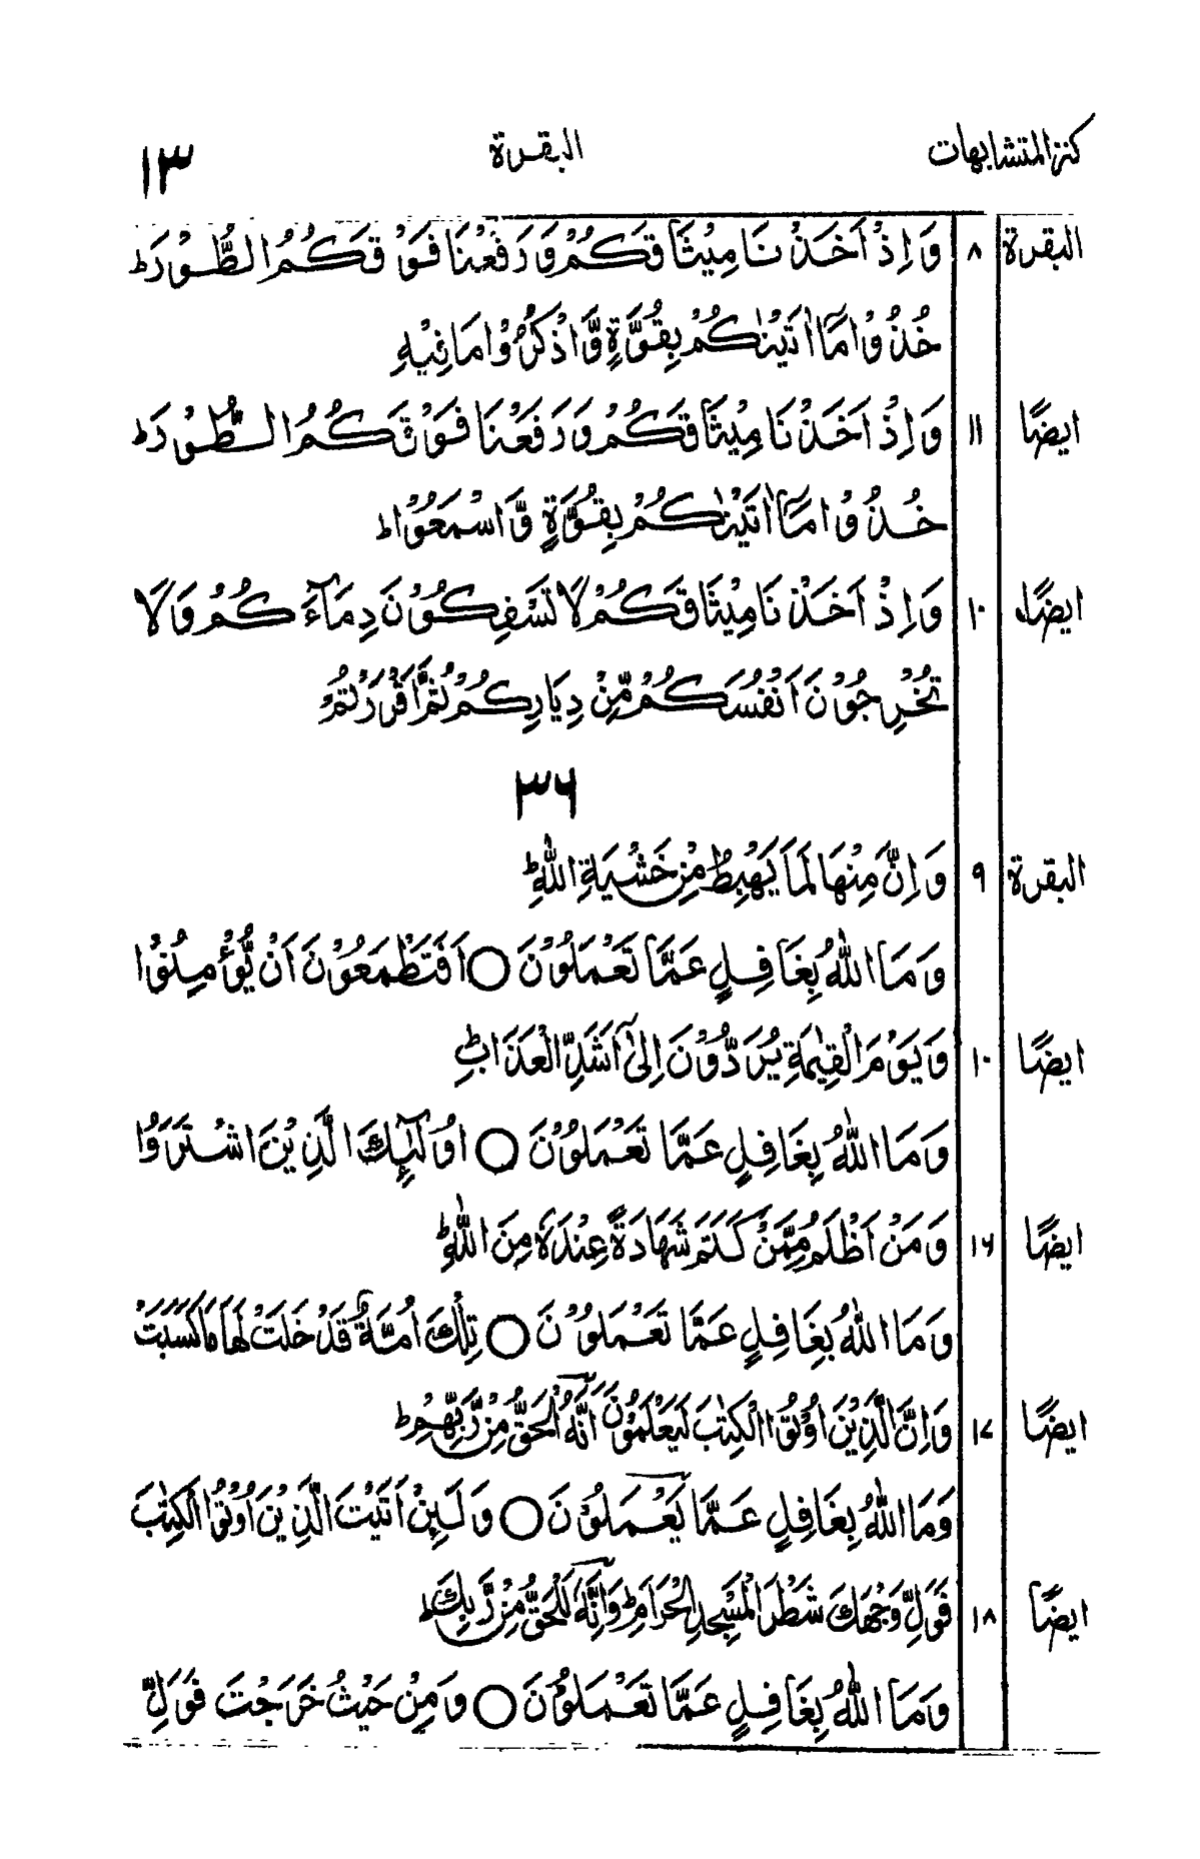 كنز المتشابهات البقرة ١٣
البقرة ٨ وَاِذْ اَخَذْنَا مِيْثَاقَكُمْ وَرَفَعْنَا فَوْقَكُمُ الطُّوْرَ ؕ
خُذُوْا مَآ اٰتَيْنٰكُمْ بِقُوَّةٍ وَّاذْكُرُوْا مَا فِيْهِ
ايضًا ١١ وَاِذْ اَخَذْنَا مِيْثَاقَكُمْ وَرَفَعْنَا فَوْقَكُمُ الطُّوْرَ ؕ
خُذُوْا مَآ اٰتَيْنٰكُمْ بِقُوَّةٍ وَّاسْمَعُوْا ؕ
ايضًا ١٠ وَاِذْ اَخَذْنَا مِيْثَاقَكُمْ لَا تَسْفِكُوْنَ دِمَآءَكُمْ وَلَا
تُخْرِجُوْنَ اَنْفُسَكُمْ مِّنْ دِيَارِكُمْ ثُمَّ اَقْرَرْتُمْ
٣٦
البقرة ٩ وَاِنَّ مِنْهَا لَمَا يَهْبِطُ مِنْ خَشْيَةِ اللّٰهِ ؕ
وَمَا اللّٰهُ بِغَافِلٍ عَمَّا تَعْمَلُوْنَ ○ اَفَتَطْمَعُوْنَ اَنْ يُّؤْمِنُوْا
ايضًا ١٠ وَيَوْمَ الْقِيٰمَةِ يُرَدُّوْنَ اِلٰٓى اَشَدِّ الْعَذَابِ ؕ
وَمَا اللّٰهُ بِغَافِلٍ عَمَّا تَعْمَلُوْنَ ○ اُولٰٓئِكَ الَّذِيْنَ اشْتَرَوُا
ايضًا ١٦ وَمَنْ اَظْلَمُ مِمَّنْ كَتَمَ شَهَادَةً عِنْدَهٗ مِنَ اللّٰهِ ؕ
وَمَا اللّٰهُ بِغَافِلٍ عَمَّا تَعْمَلُوْنَ ○ تِلْكَ اُمَّةٌ قَدْ خَلَتْ لَهَا مَا كَسَبَتْ
ايضًا ١٧ وَاِنَّ الَّذِيْنَ اُوْتُوا الْكِتٰبَ لَيَعْلَمُوْنَ اَنَّهُ الْحَقُّ مِنْ رَّبِّهِمْ ؕ
وَمَا اللّٰهُ بِغَافِلٍ عَمَّا يَعْمَلُوْنَ ○ وَلَئِنْ اَتَيْتَ الَّذِيْنَ اُوْتُوا الْكِتٰبَ
ايضًا ١٨ فَوَلِّ وَجْهَكَ شَطْرَ الْمَسْجِدِ الْحَرَامِ ؕ وَاِنَّهٗ لَلْحَقُّ مِنْ رَّبِّكَ ؕ
وَمَا اللّٰهُ بِغَافِلٍ عَمَّا تَعْمَلُوْنَ ○ وَمِنْ حَيْثُ خَرَجْتَ فَوَلِّ